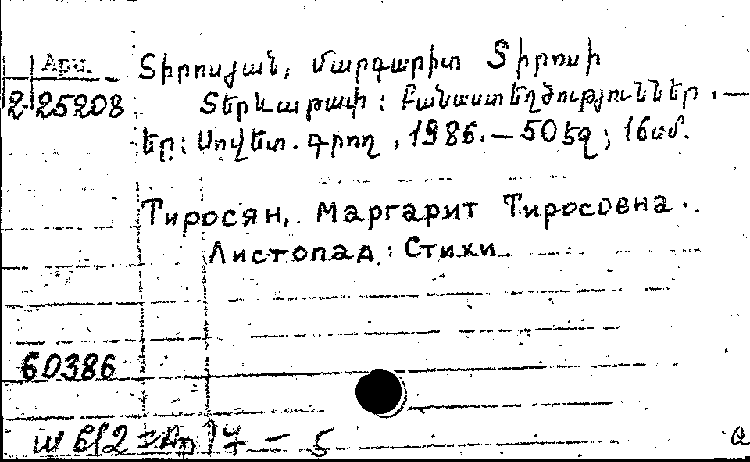 Арм. Տիրոսյան, Մարգարիտ Տիրոսի
2-25208 Տերևաթափ : Բանաստեղծություններ. —
Եր.: Սովետ. գրող, 1986. — 50 էջ; 16սմ.
Тиросян, Маргарит Тиросовна.
Листопад : Стихи
60386